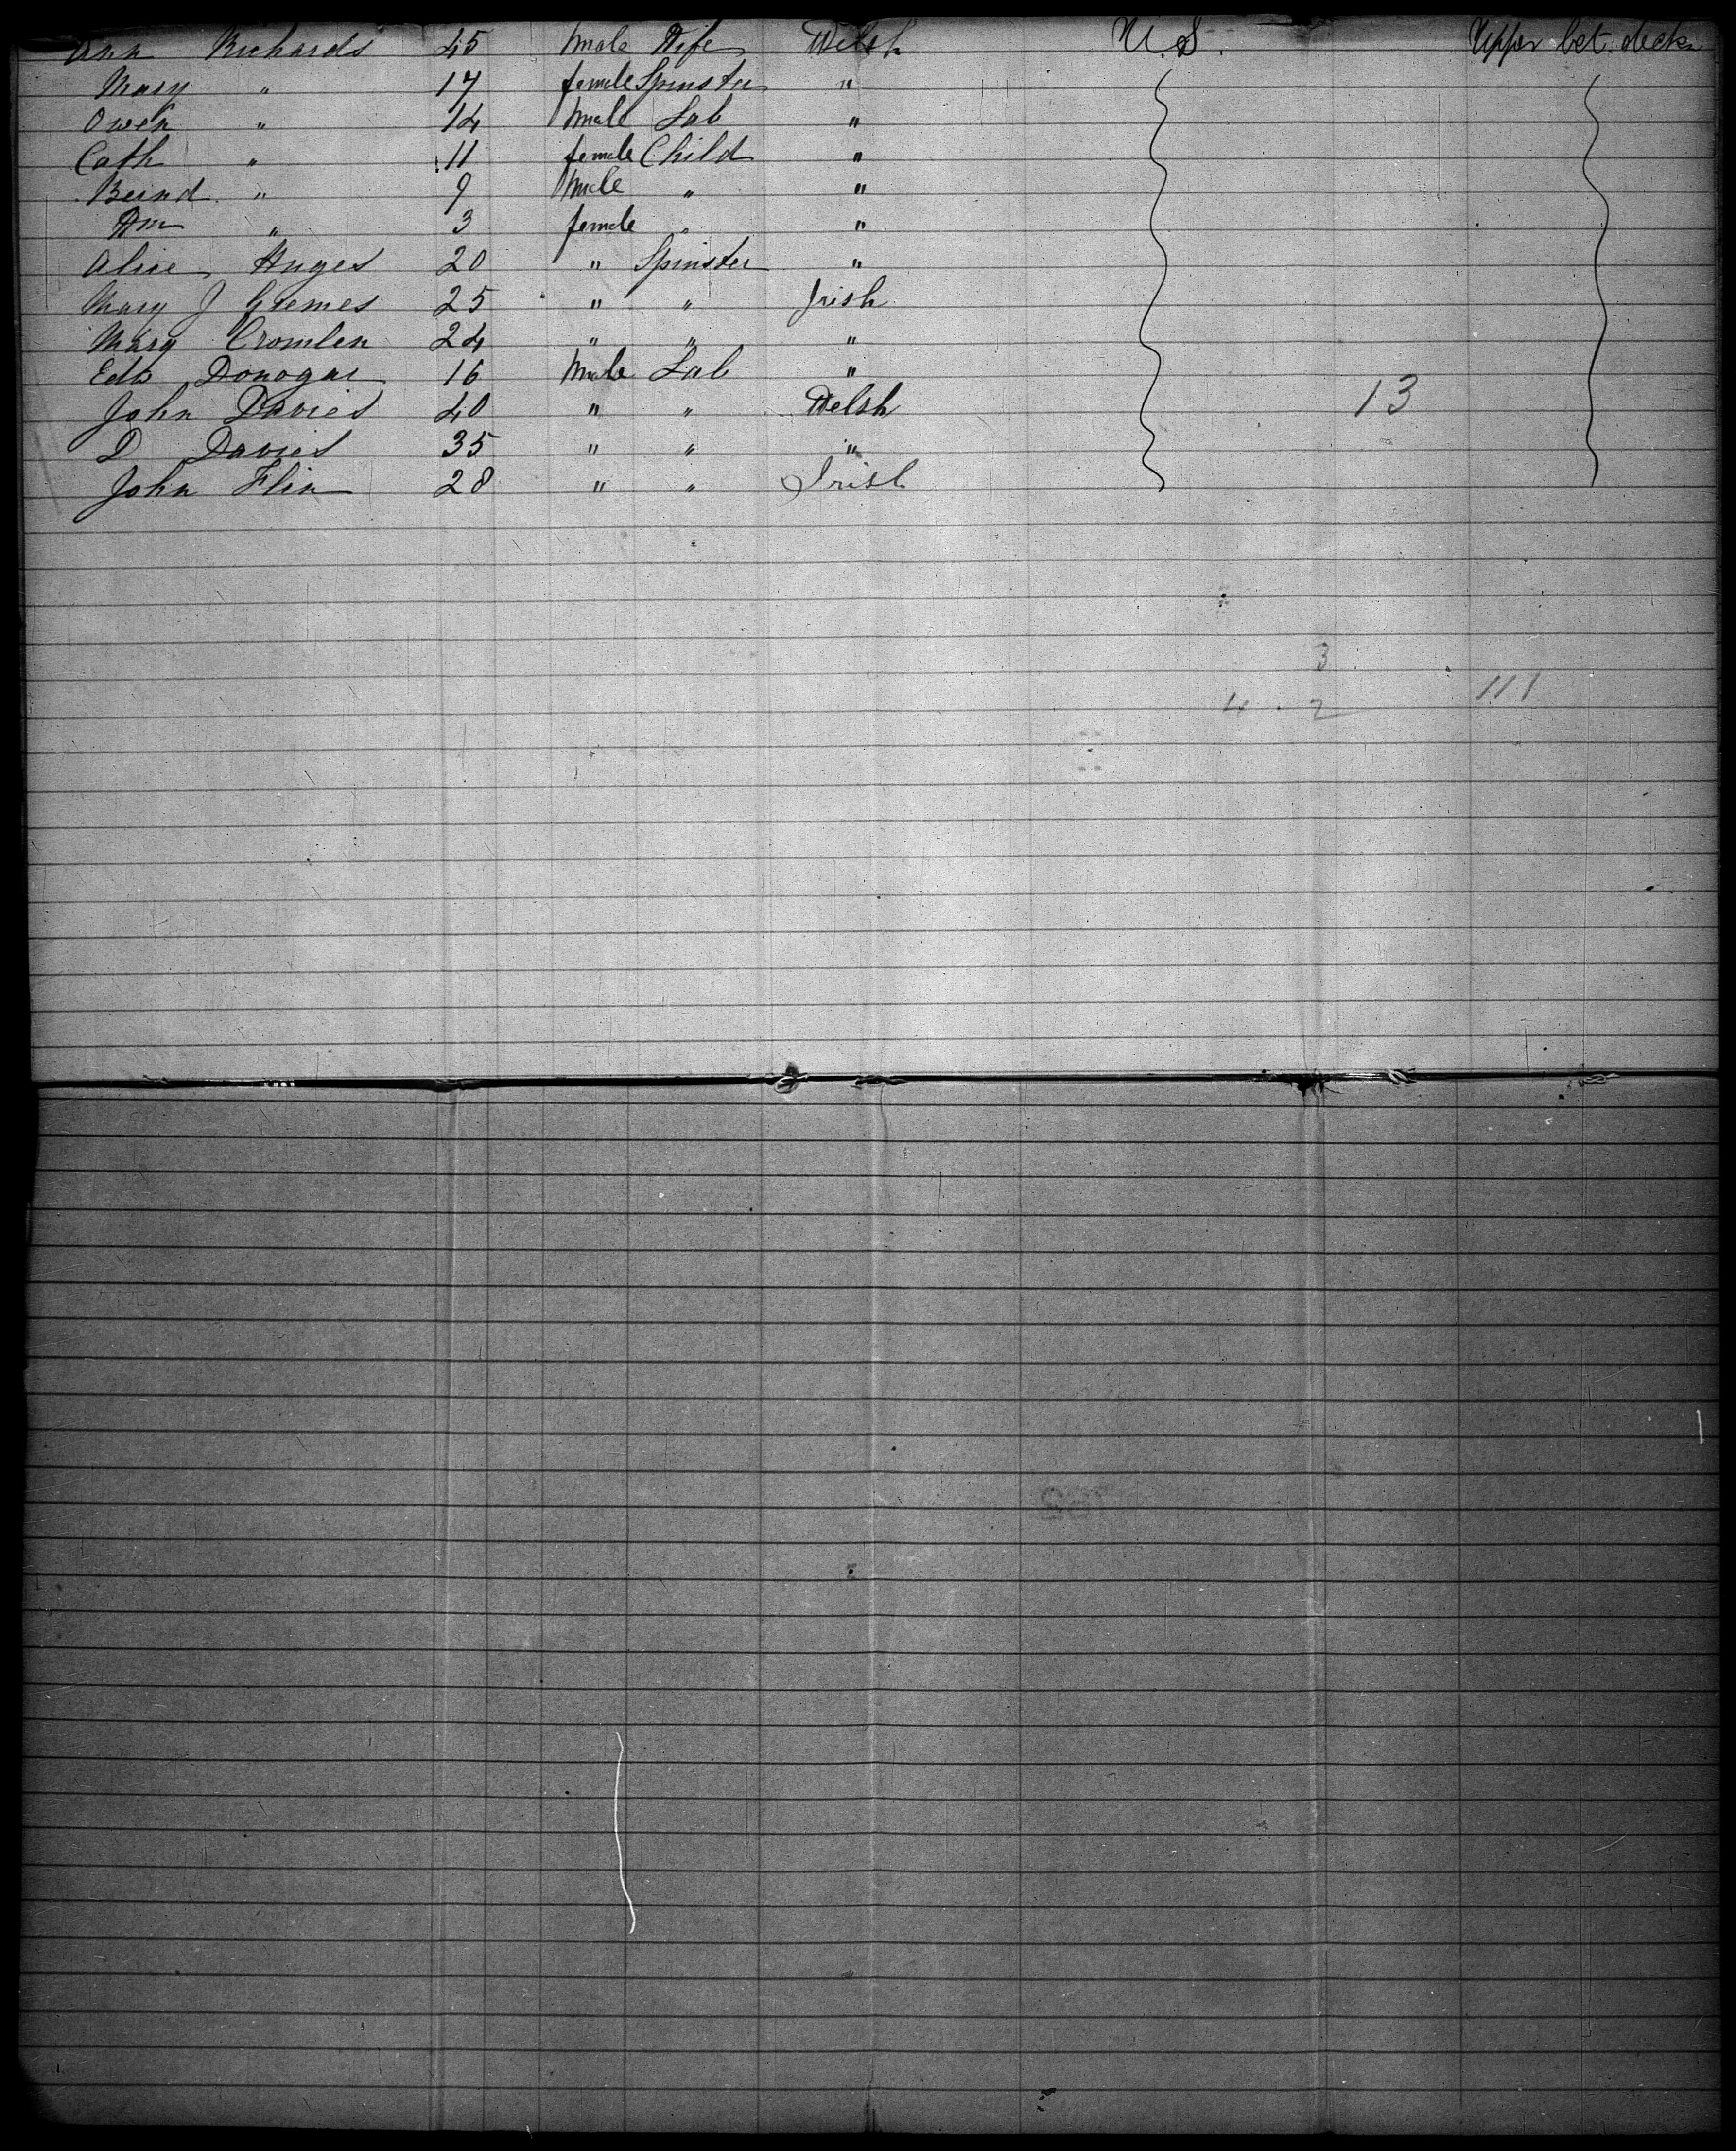 Ann Richards 45 Male Wife Welsh U.S. Upper bet. decks
Mary " 17 female Spinster "
Owen " 14 Male Lab "
Cath " 11 female Child "
Bernd. " 9 Male " "
" 3 female " "
Alice Huges 20 " Spinster "
Mary J Gremes 25 " " Irish
Mary Cromlen 24 " " "
Edw Donogar 16 Male Lab "
John Davies 40 " " Welsh 13
D Davies 35 " " "
John Flin 28 " " Irish
3
4 . 2 111